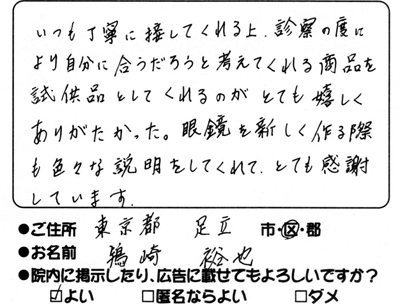 いつも丁寧に接してくれる上、診察の度に
より自分に合うだろうと考えてくれる商品を
試供品としてくれるのがとても嬉しく
ありがたかった。眼鏡を新しく作る際
も色々な説明をしてくれて、とても感謝
しています。
●ご住所 東京都 足立 市・区・郡
●お名前 崎 裕也
●院内に掲示したり、広告に載せてもよろしいですか?
☑よい □匿名ならよい □ダメ